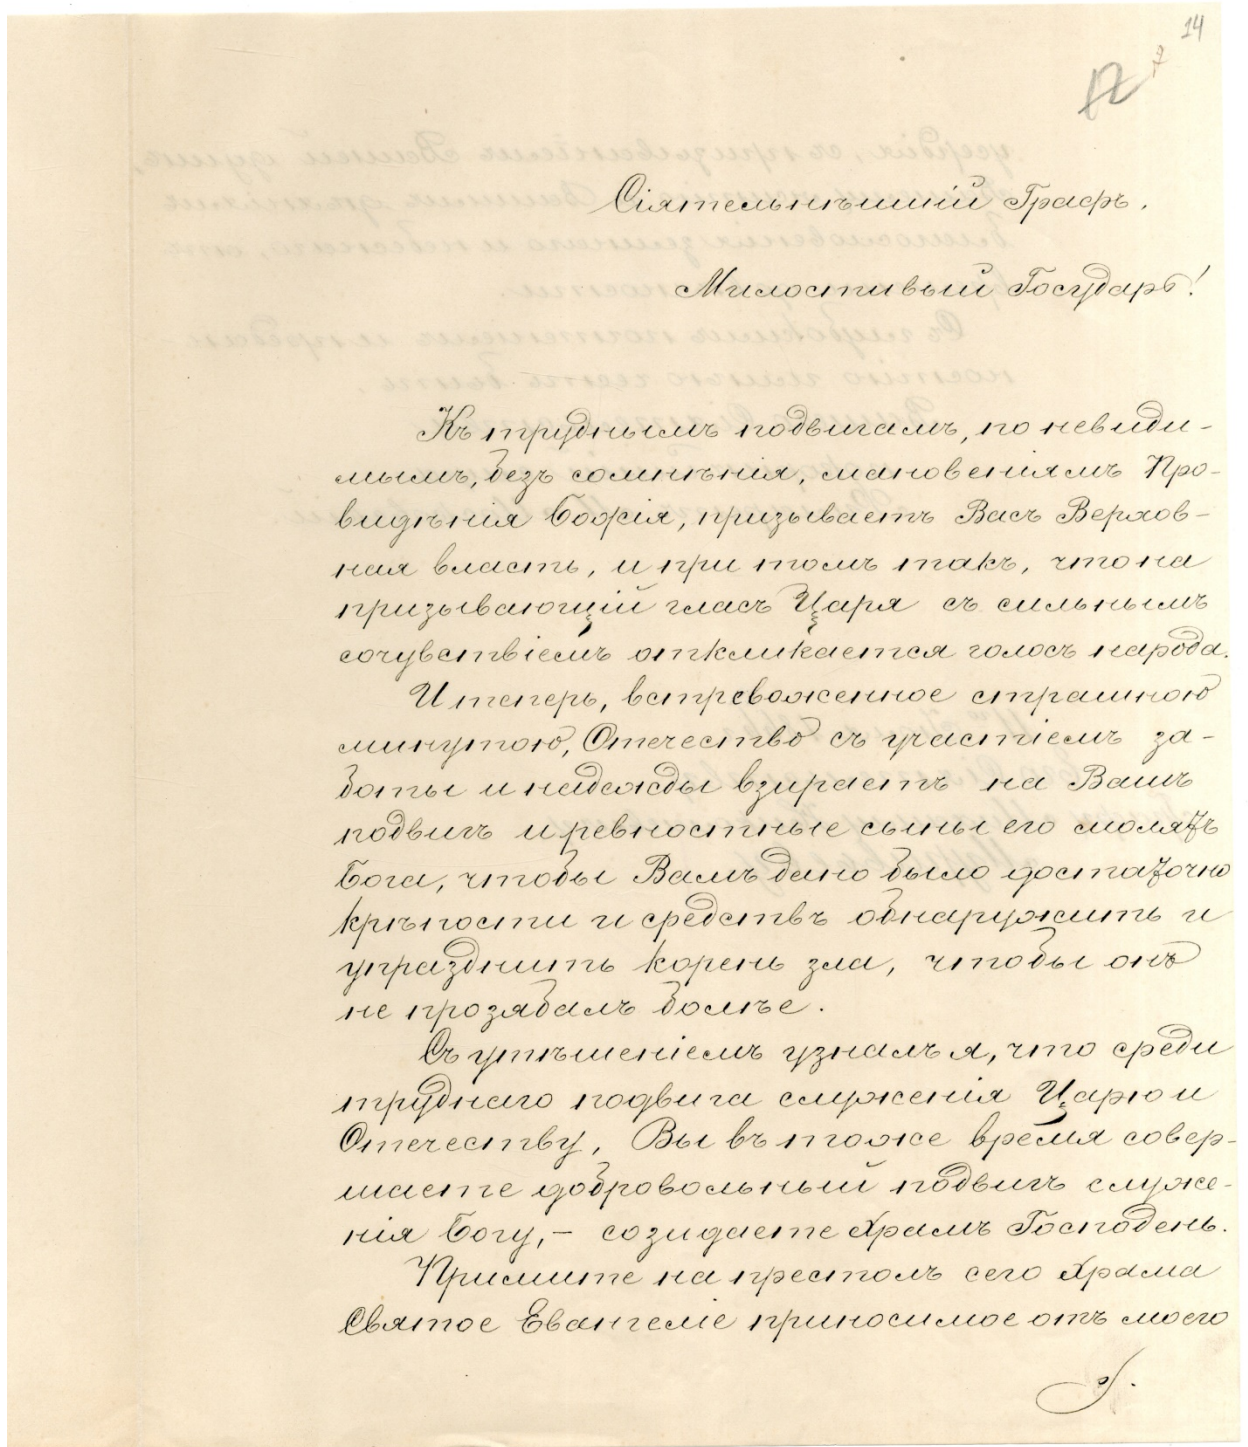 14
17
Сіятельнѣйшій Графъ.
Милостивый Государь!
Къ труднымъ подвигамъ, по невиди-
мымъ, безъ сомнѣнія, мановеніямъ Про-
видѣнія Божія, призываетъ Васъ Верхов-
ная власть, и при томъ такъ, что на
призывающій гласъ Царя съ сильнымъ
сочувствіемъ откликается голосъ народа.
И теперь, встревоженное страшною
минутою, Отечество съ участіемъ за-
боты и надежды взираетъ на Вашъ
подвигъ и ревностные сыны его молятъ
Бога, чтобы Вамъ дано было достаточно
крѣпости и средствъ обнаружить и
упразднить корень зла, чтобы онъ
не прозябалъ болѣе.
Съ утѣшеніемъ узналъ я, что среди
труднаго подвига служенія Царю и
Отечеству, Вы въ тоже время совер-
шаете добровольный подвигъ служе-
нія Богу, – созидаете Храмъ Господень.
Примите на престолъ сего Храма
Святое Евангеліе приносимое отъ моего